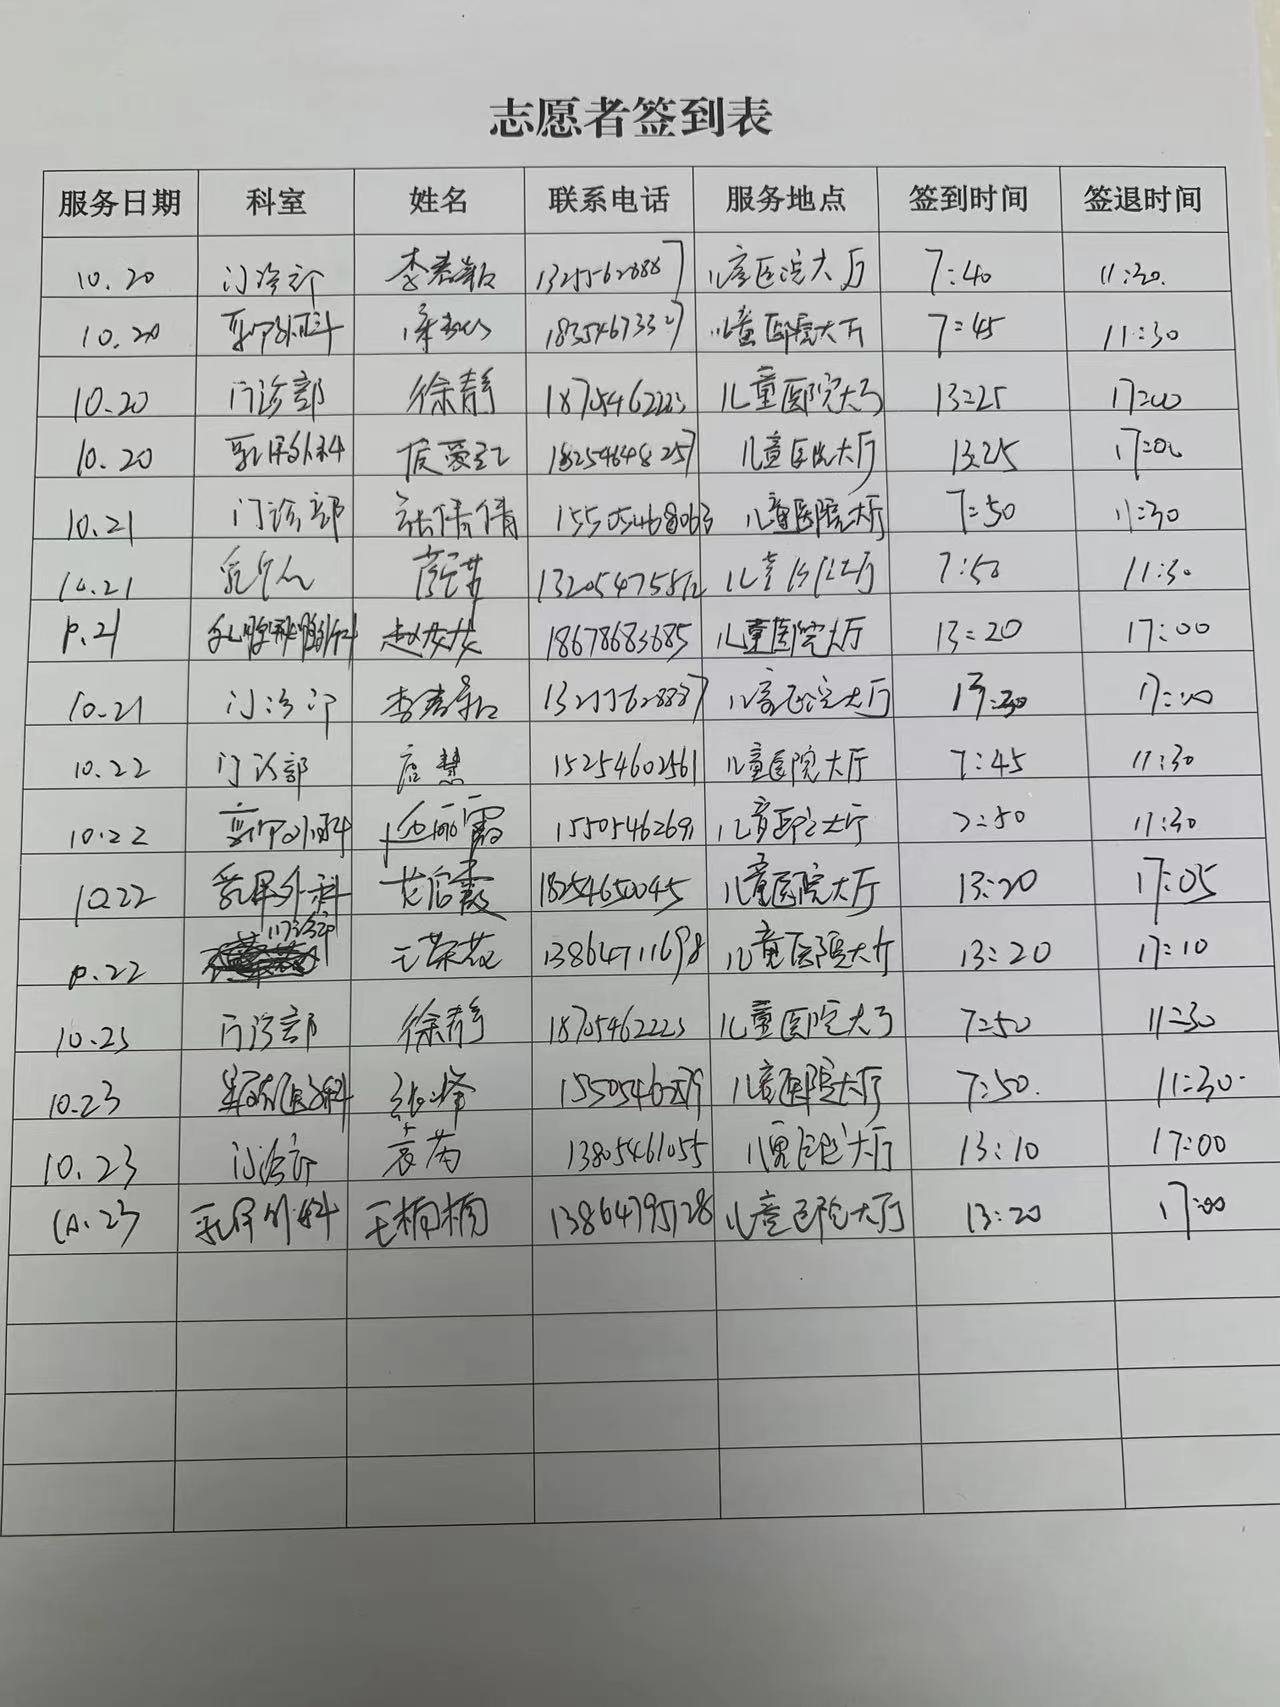 志愿者签到表
服务日期 科室 姓名 联系电话 服务地点 签到时间 签退时间
10.20 门诊部 儿童医院大厅 7:40 11:30
10.20 乳甲外科 儿童医院大厅 7:45 11:30
10.20 门诊部 徐静 18705462223 儿童医院大厅 13:25 17:00
10.20 乳甲外科 18254648257 儿童医院大厅 13:25 17:00
10.21 门诊部 张倩倩 15505468063 儿童医院大厅 7:50 11:30
10.21 儿童医院大厅 7:50 11:30
10.21 赵女女 18678683685 儿童医院大厅 13:20 17:00
10.21 门诊部 儿童医院大厅 17:00
10.22 门诊部 启慧 15254602561 儿童医院大厅 7:45 11:30
10.22 乳甲外科 儿童医院大厅 7:50 11:30
10.22 乳甲外科 18254650045 儿童医院大厅 13:20 17:05
10.22 门诊部 13864711698 儿童医院大厅 13:20 17:10
10.23 门诊部 徐静 18705462223 儿童医院大厅 7:50 11:30
10.23 儿童医院大厅 7:50 11:30
10.23 门诊部 袁芮 13805461055 儿童医院大厅 13:10 17:00
10.23 乳甲外科 王楠楠 13864795128 儿童医院大厅 13:20 17:00